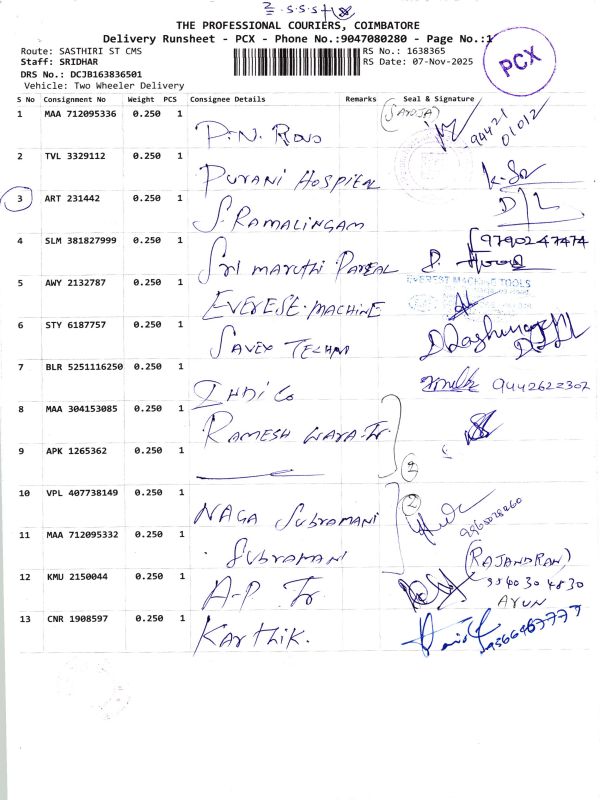 THE PROFESSIONAL COURIERS, COIMBATORE
Delivery Runsheet - PCX - Phone No.:9047080280 - Page No.:1
Route: SASTHIRI ST CMS
RS No.: 1638365
Staff: SRIDHAR
RS Date: 07-Nov-2025
PCX
DRS No.: DCJB163836501
Vehicle: Two Wheeler Delivery
S No Consignment No Weight PCS Consignee Details Remarks Seal & Signature
1 MAA 712095336 0.250 1 P.N. Rows (SAROJA) 94421 01012
2 TVL 3329112 0.250 1 PURANI HOSPITAL
3 ART 231442 0.250 1 S. RAMALINGAM
4 SLM 381827999 0.250 1 SRI MARUTHI PARCEL 9790247474
5 AWY 2132787 0.250 1 EVERESE. MACHINE EVEREST MACHINE TOOLS
6 STY 6187757 0.250 1 SAVEX TECHNI
7 BLR 5251116250 0.250 1 INDI Co 9442622302
8 MAA 304153085 0.250 1 RAMESH
9 APK 1265362 0.250 1 2
10 VPL 407738149 0.250 1 NAGA SUBRAMANI 2
11 MAA 712095332 0.250 1 SUBRAMANI (RAJANDRAN)
12 KMU 2150044 0.250 1 A-P. Tr ARUN
13 CNR 1908597 0.250 1 KARTHIK. 9566467777